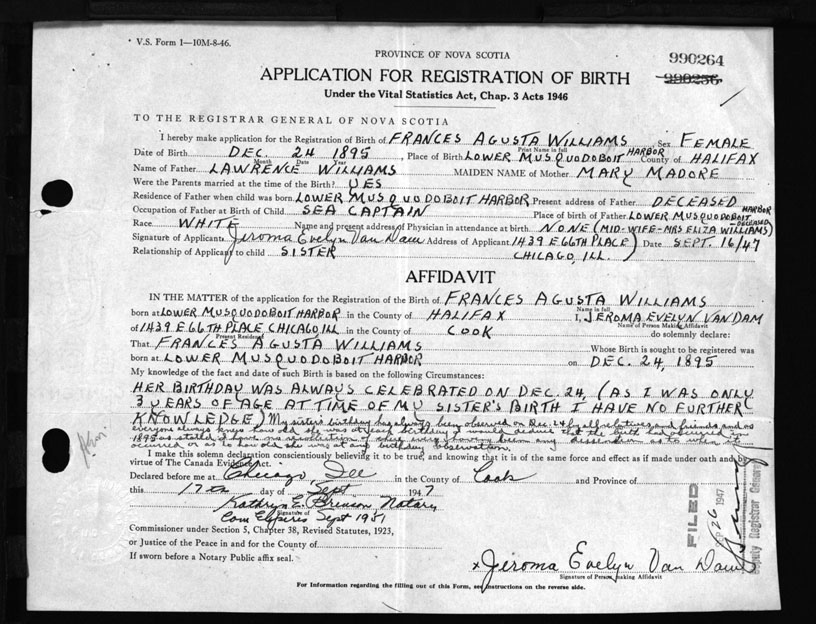 V.S. Form 1—10M-8-46.
PROVINCE OF NOVA SCOTIA
990264
APPLICATION FOR REGISTRATION OF BIRTH
990256
Under the Vital Statistics Act, Chap. 3 Acts 1946
TO THE REGISTRAR GENERAL OF NOVA SCOTIA
I hereby make application for the Registration of Birth of FRANCES AGUSTA WILLIAMS Sex FEMALE
Print Name in full
Date of Birth DEC. 24 1895, Place of Birth LOWER MUSQUODOBOIT HARBOR County of HALIFAX
Month Date Year
Name of Father LAWRENCE WILLIAMS MAIDEN NAME of Mother MARY MADORE
Were the Parents married at the time of the Birth? YES
Residence of Father when child was born LOWER MUSQUODOBOIT HARBOR Present address of Father DECEASED
Occupation of Father at Birth of Child SEA CAPTAIN Place of birth of Father LOWER MUSQUODOBOIT HARBOR
Race WHITE Name and present address of Physician in attendance at birth NONE (MID-WIFE-MRS ELIZA WILLIAMS) -DECEASED
Signature of Applicant Jeroma Evelyn Van Dam Address of Applicant 1439 E 66TH PLACE Date SEPT. 16/47
Relationship of Applicant to child SISTER CHICAGO, ILL.
AFFIDAVIT
IN THE MATTER of the application for the Registration of the Birth of FRANCES AGUSTA WILLIAMS
Name in full
born at LOWER MUSQUODOBOIT HARBOR in the County of HALIFAX I, JEROMA EVELYN VAN DAM
Name of Person Making Affidavit
of 1439 E 66TH PLACE CHICAGO ILL in the County of COOK do solemnly declare:
Present Residence
That FRANCES AGUSTA WILLIAMS Whose Birth is sought to be registered was
born at LOWER MUSQUODOBOIT HARBOR on DEC. 24, 1895
My knowledge of the fact and date of such Birth is based on the following Circumstances:
HER BIRTHDAY WAS ALWAYS CELEBRATED ON DEC. 24, (AS I WAS ONLY
3 YEARS OF AGE AT TIME OF MY SISTER'S BIRTH I HAVE NO FURTHER
KNOWLEDGE) My sisters birthday has always been observed on Dec. 24 by all relatives and friends and as
everyone always knew how old she was at each birthday I would declare that the birth occurred in
1895 as stated. I have no recollection of there ever having been any dissension as to when it
occurred or as to how old she was at any birthday observation.
I make this solemn declaration conscientiously believing it to be true, and knowing that it is of the same force and effect as if made under oath and by
virtue of The Canada Evidence Act.
Declared before me at Chicago Ill in the County of Cook and Province of
this 17th day of Sept 1947
Kathryn E. Brinson, Notary
Signature of
Com Expires Sept 1951
Commissioner under Section 5, Chapter 38, Revised Statutes, 1923,
or Justice of the Peace in and for the County of
If sworn before a Notary Public affix seal.
x Jeroma Evelyn Van Dam
Signature of Person making Affidavit
FILED
26 1947
Deputy Registrar General
For Information regarding the filling out of this Form, see instructions on the reverse side.